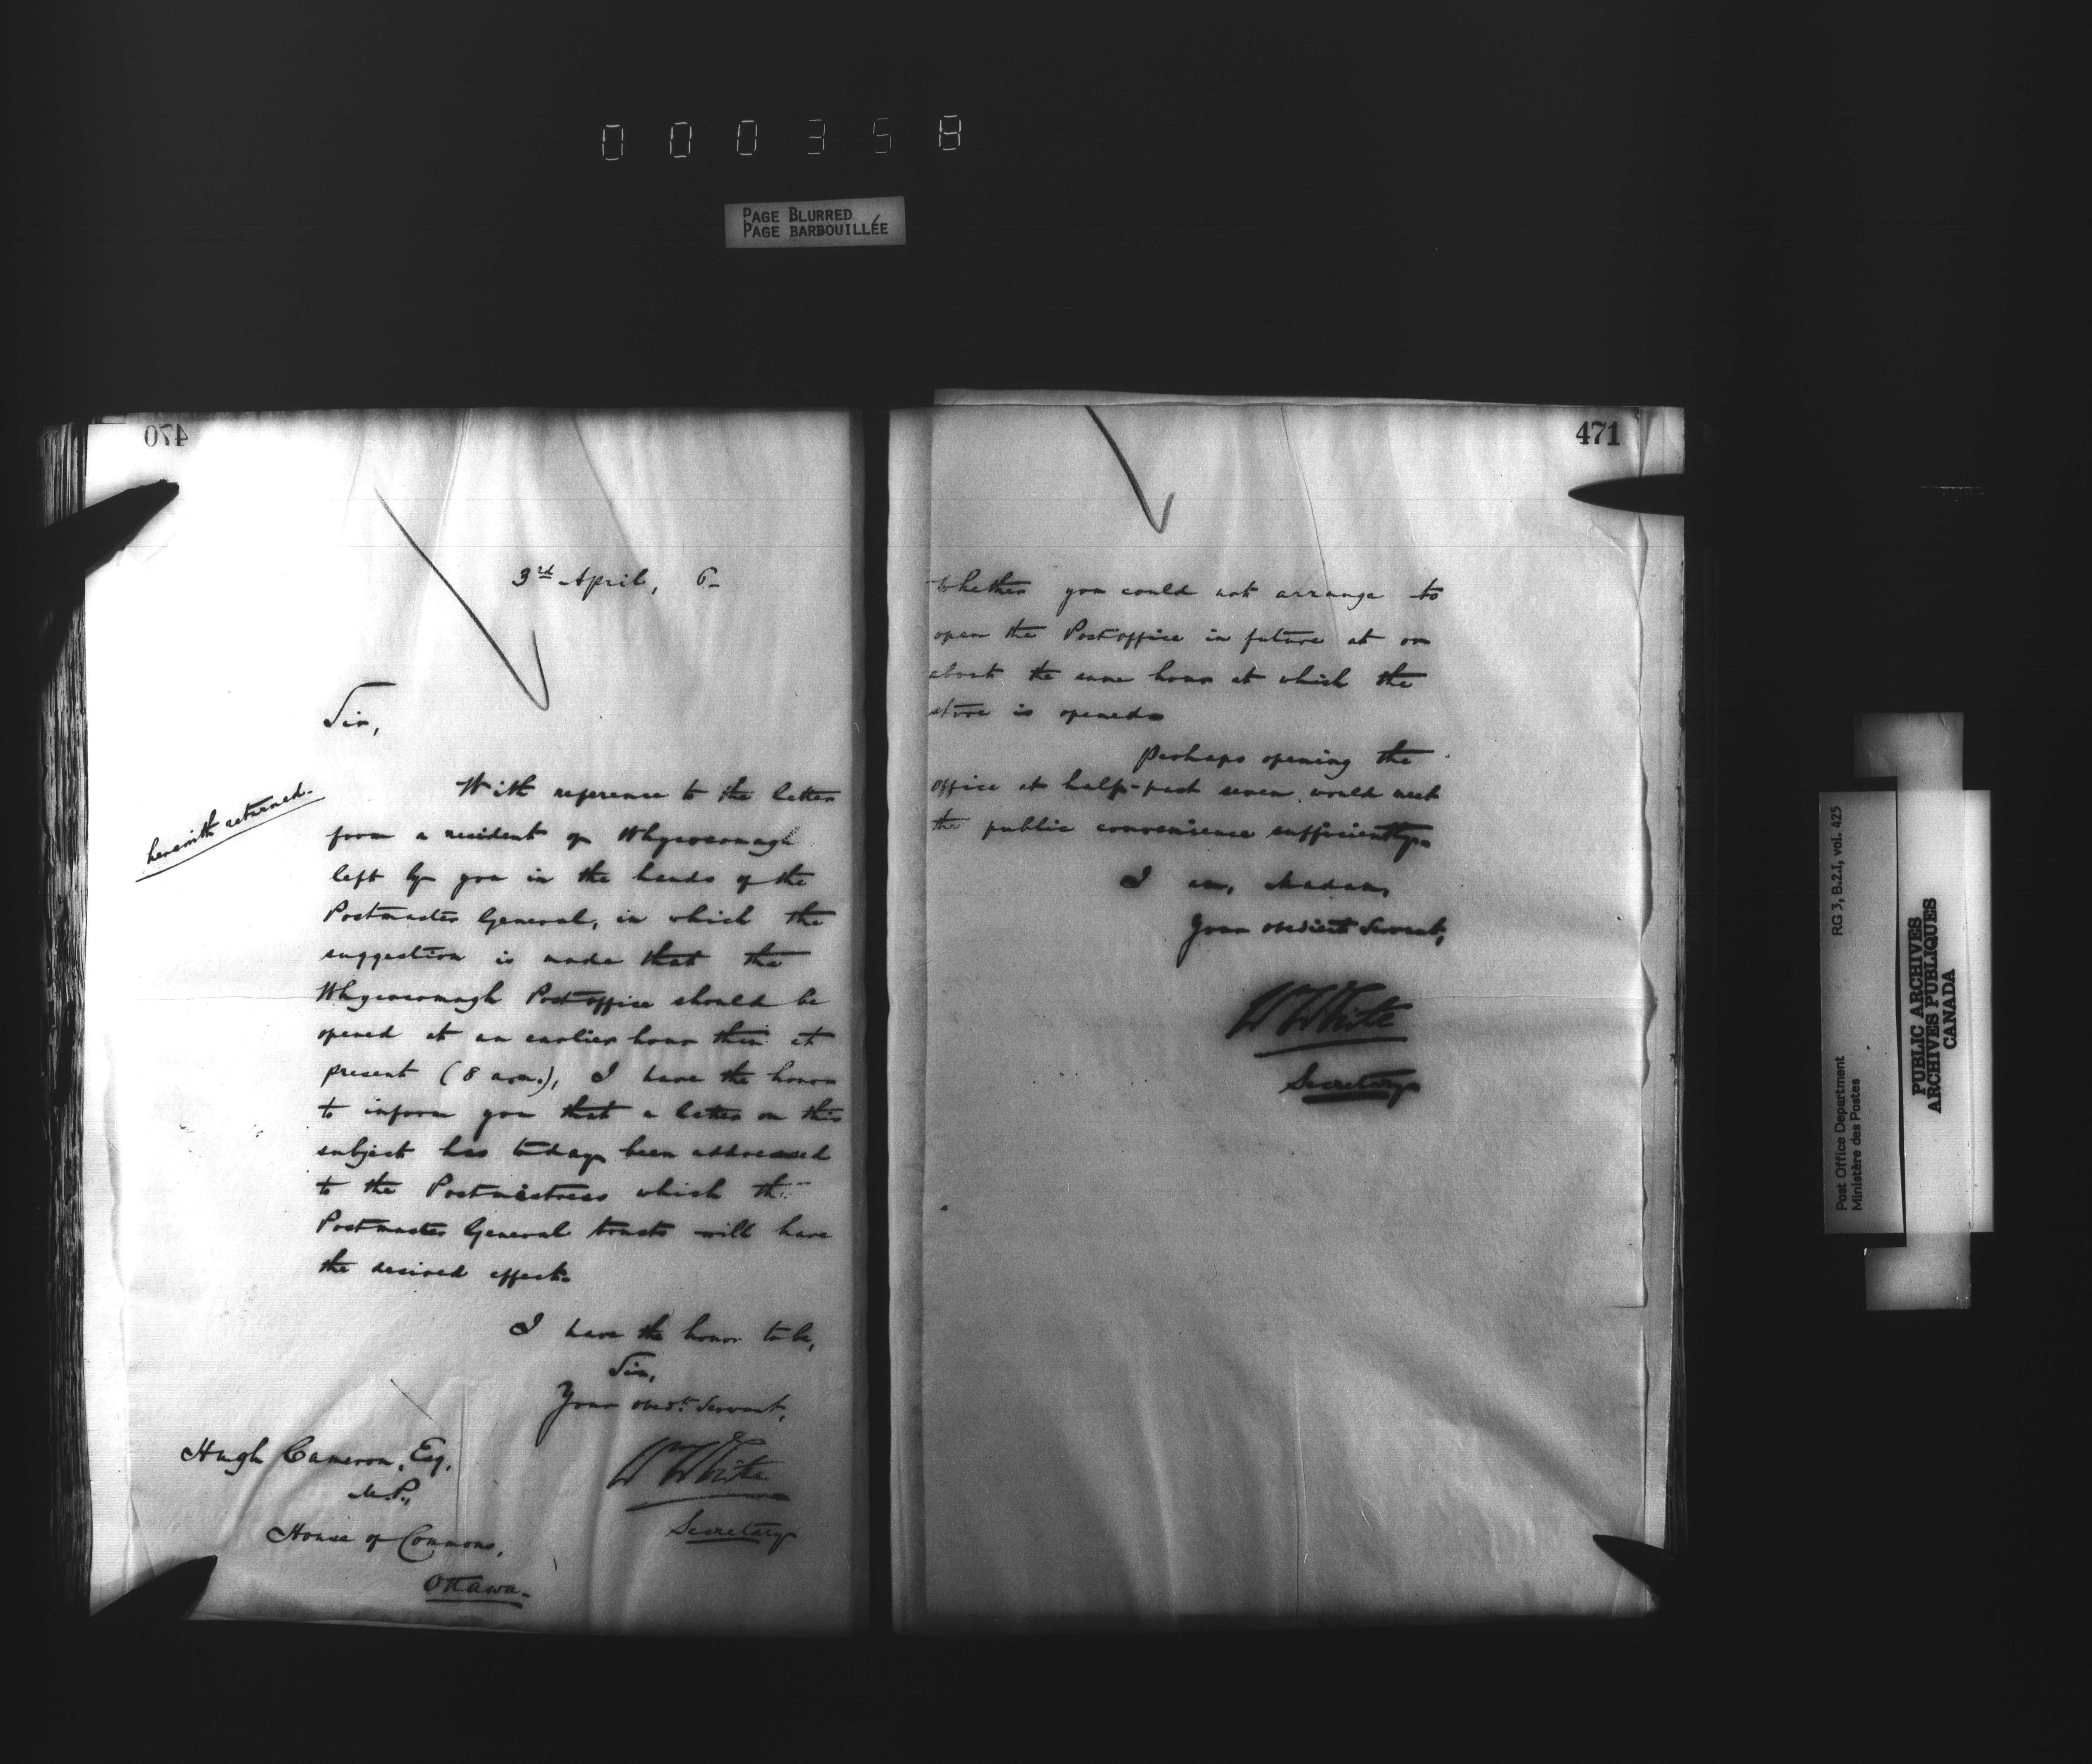 000358
PAGE BLURRED
PAGE BARBOUILLÉE
470
3rd April, 6-
Sir,
herewith returned.
With reference to the letter
from a resident of Whycocomagh
left by you in the hands of the
Postmaster General, in which the
suggestion is made that the
Whycocomagh Post office should be
opened at an earlier hour than at
present (8 a.m.), I have the honor
to inform you that a letter on this
subject has today been addressed
to the Postmistress which the
Postmaster General trusts will have
the desired effect.
I have the honor to be,
Sir,
Your obedt. Servant,
Wm White
Secretary
Hugh Cameron, Esq.
M.P.,
House of Commons,
Ottawa.
471
whether you could not arrange to
open the Post office in future at or
about the same hour at which the
store is opened.
Perhaps opening the
office at half-past seven would meet
the public convenience sufficiently.
I am, Madam,
Your obedient Servant,
W White
Secretary
RG 3, B.2.1, vol. 425
Post Office Department
Ministère des Postes
PUBLIC ARCHIVES
ARCHIVES PUBLIQUES
CANADA